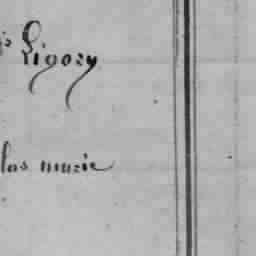 Ligory
las murie